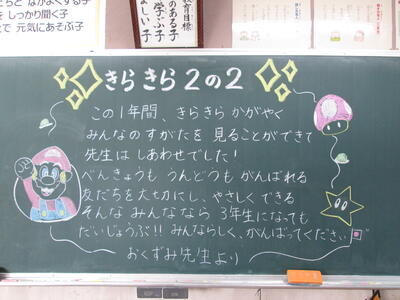 だちと なかよくする子
しっかり聞く子
で 元気にあそぶ子
教育目標
のある子
学ぶ子
しい子
きらきら2の2
この1年間、きらきら かがやく
みんなの すがたを 見ることができて
先生は しあわせでした!
べんきょうも うんどうも がんばれる
友だちを大切にし、やさしく できる
そんな みんななら 3年生になっても
だいじょうぶ!! みんならしく、がんばってください
おくずみ先生より